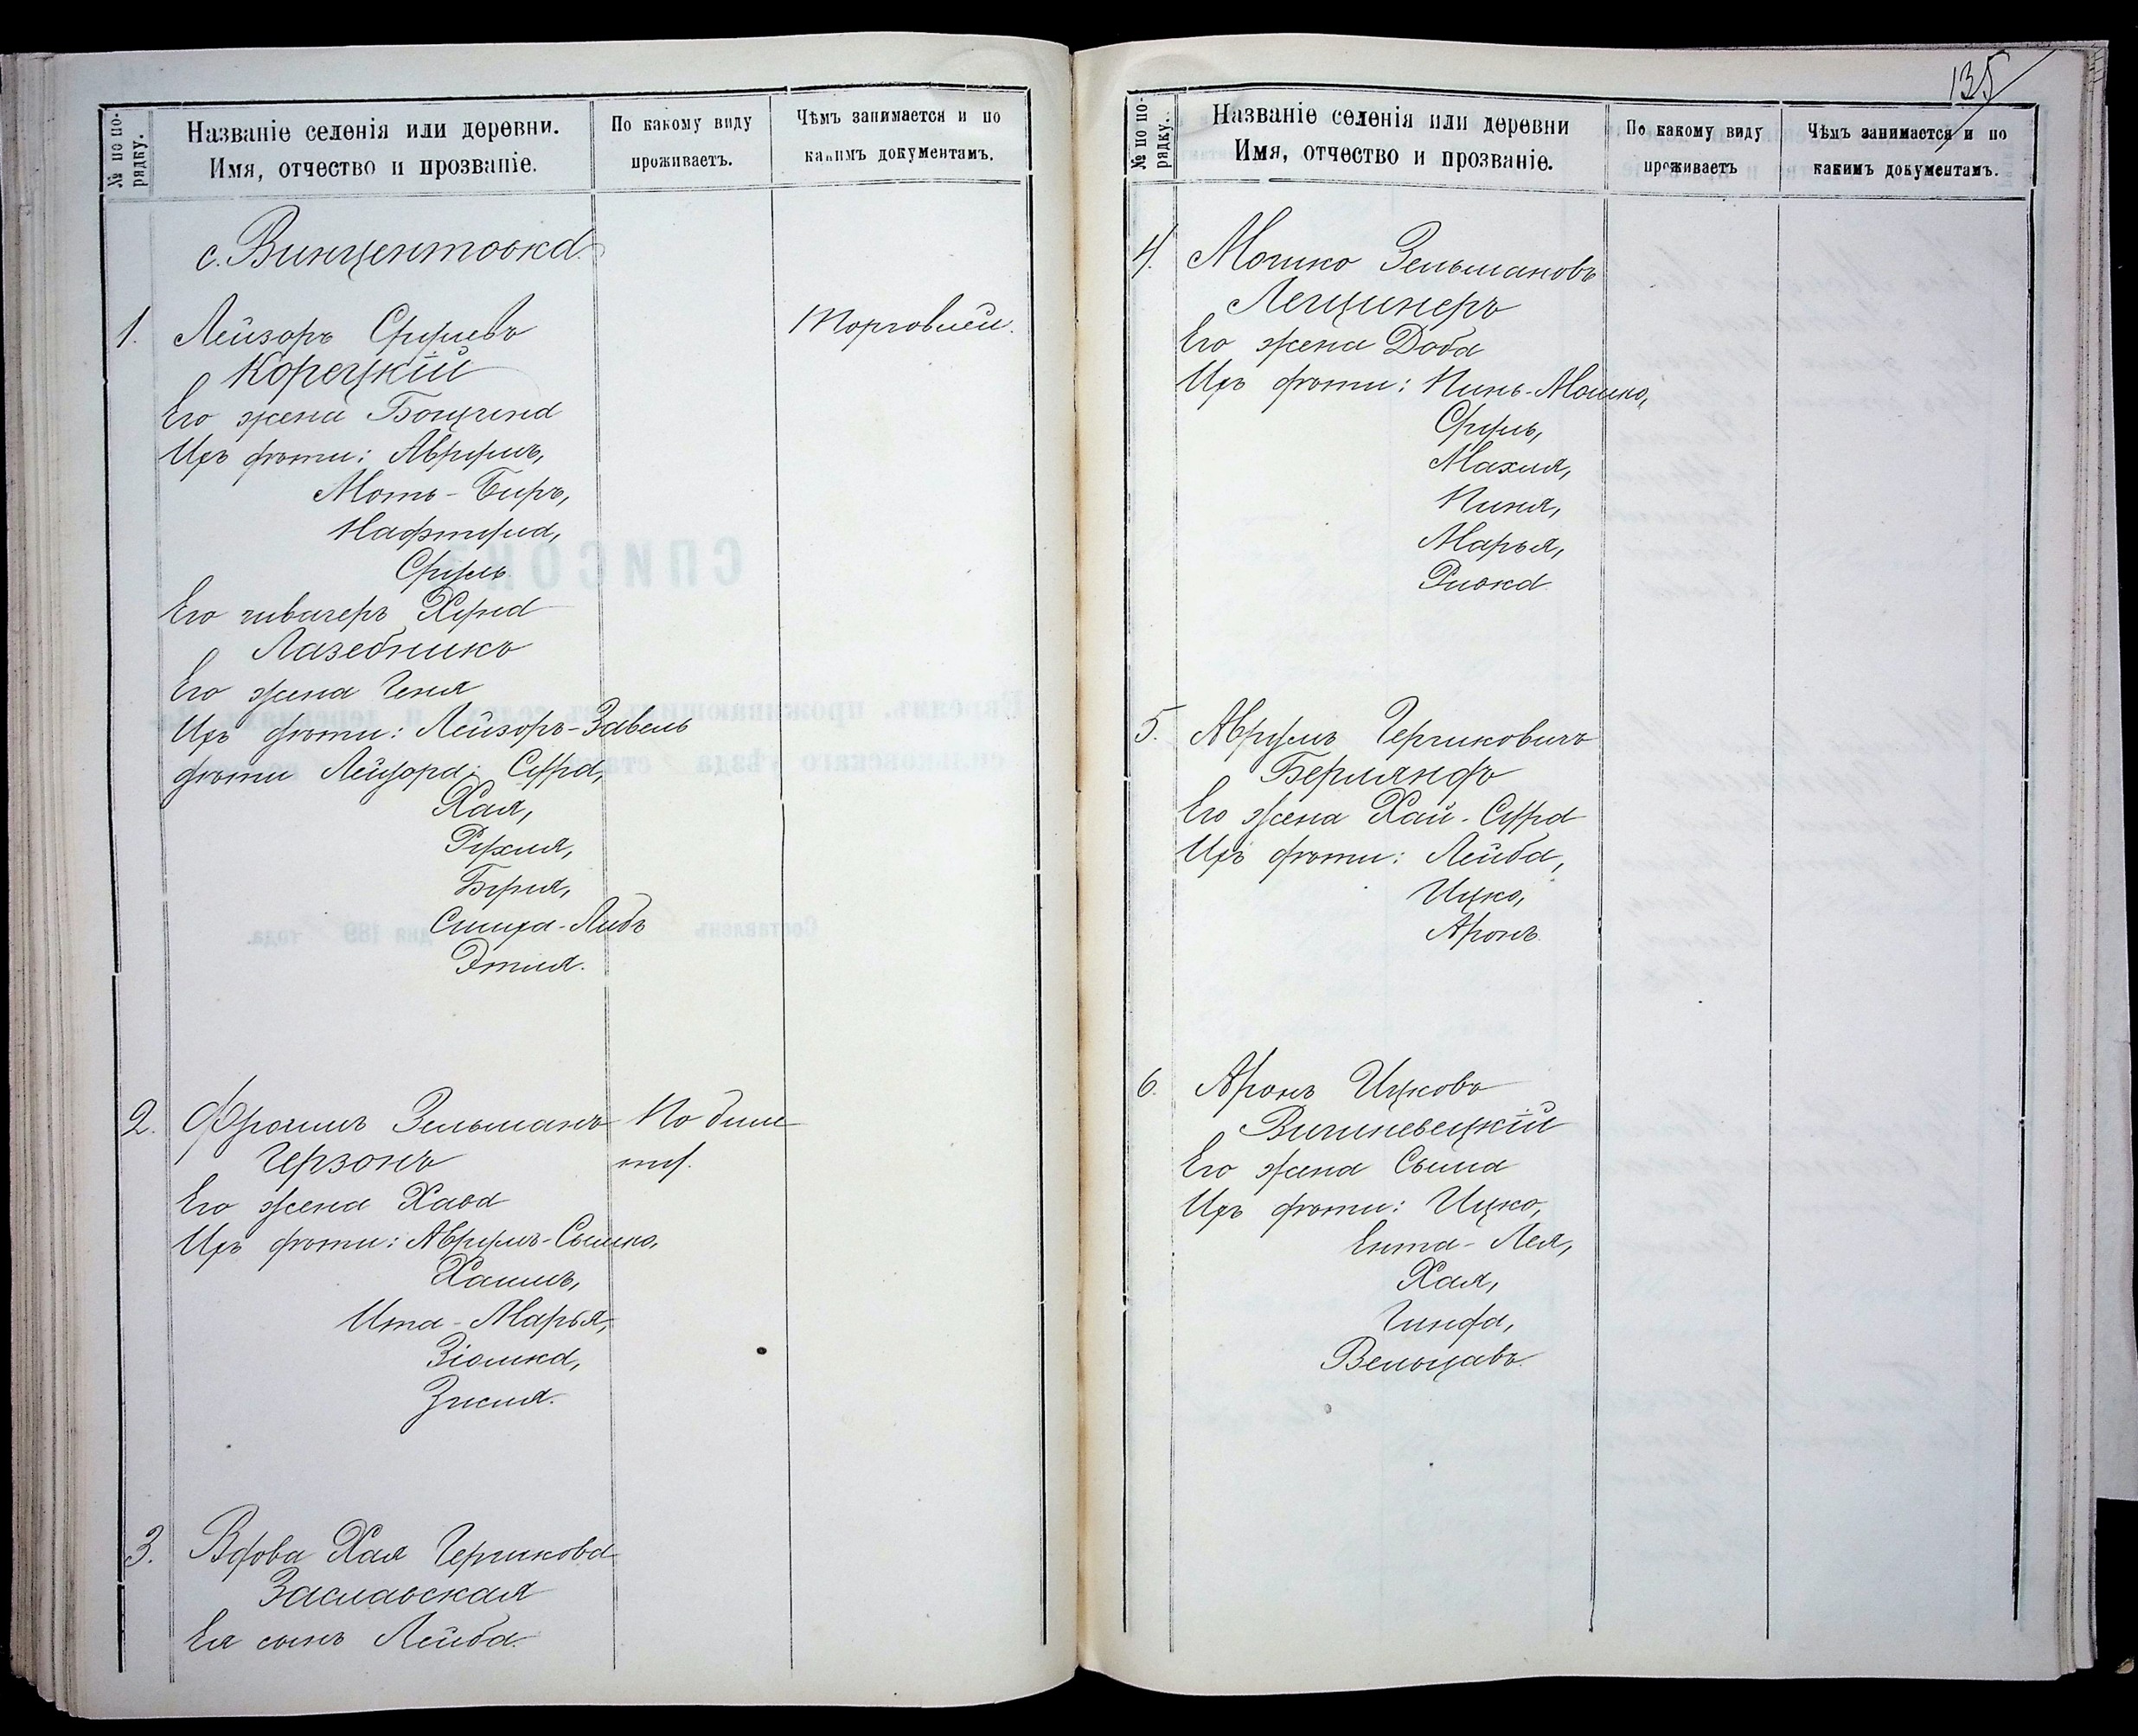 № по по-
рядку.
Названіе селенія или деревни.
Имя, отчество и прозваніе.
По какому виду
проживаетъ.
Чѣмъ занимается и по
какимъ документамъ.
с. Винцентовка.
1. Лейзоръ Сруловъ Торговлей.
Корецкій
Его жена
Ихъ дѣти: Аврумъ,
Моть-Беръ,
Нафтула,
Сруль
Его
Лазебникъ
Его жена Геня
Ихъ дѣти: Лейзоръ-Завель
дѣти Лейзора: Сура,
Хая,
Рухля,
Бруня,
Симха-Либъ
Этля.
2. Фроимъ Зельманъ По биле
Герзонъ ту.
Его жена Хава
Ихъ дѣти: Аврумъ-Сымко,
Хаимъ,
Ита-Марья,
Зіомка,
Зисля.
3. Вдова Хая Гершкова
Заславская
Ея сынъ Лейба.
135
№ по по-
рядку.
Названіе селенія или деревни
Имя, отчество и прозваніе.
По какому виду
проживаетъ
Чѣмъ занимается и по
какимъ документамъ.
4. Мошко Зельмановъ
Лещинеръ
Его жена Доба
Ихъ дѣти: Пинь-Мошко,
Сруль,
Махля,
Пиня,
Марья,
Ривка.
5. Аврумъ Гершковичъ
Берляндъ
Его жена Хай-Сура
Ихъ дѣти: Лейба,
Ицко,
Аронъ.
6. Аронъ Ицковъ
Вишневецкій
Его жена Сыма
Ихъ дѣти: Ицко,
Ента-Лея,
Хая,
Гинда,